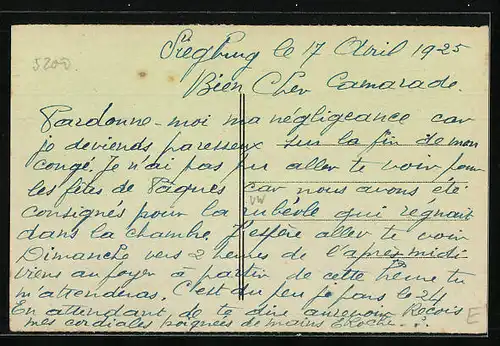 5200.
Siegburg le 17 Avril 1925
Bien Cher Camarade.
Pardonne-moi ma négligeance car
je deviends paresseux sur la fin de mon
congé. Je n'ai pas pu aller te voir pour
les fêtes de Pâques car nous avons été
consignés pour la rubéole qui regnait
dans la chambre. J'espère aller te voir
Dimanche vers 2 heures de l'après midi
viens au foyer à partir de cette heure tu
m'attenderas. C'est du peu je pars le 24
En attendant de te dire au revoir Reçois
mes cordiales poignées de mains
E